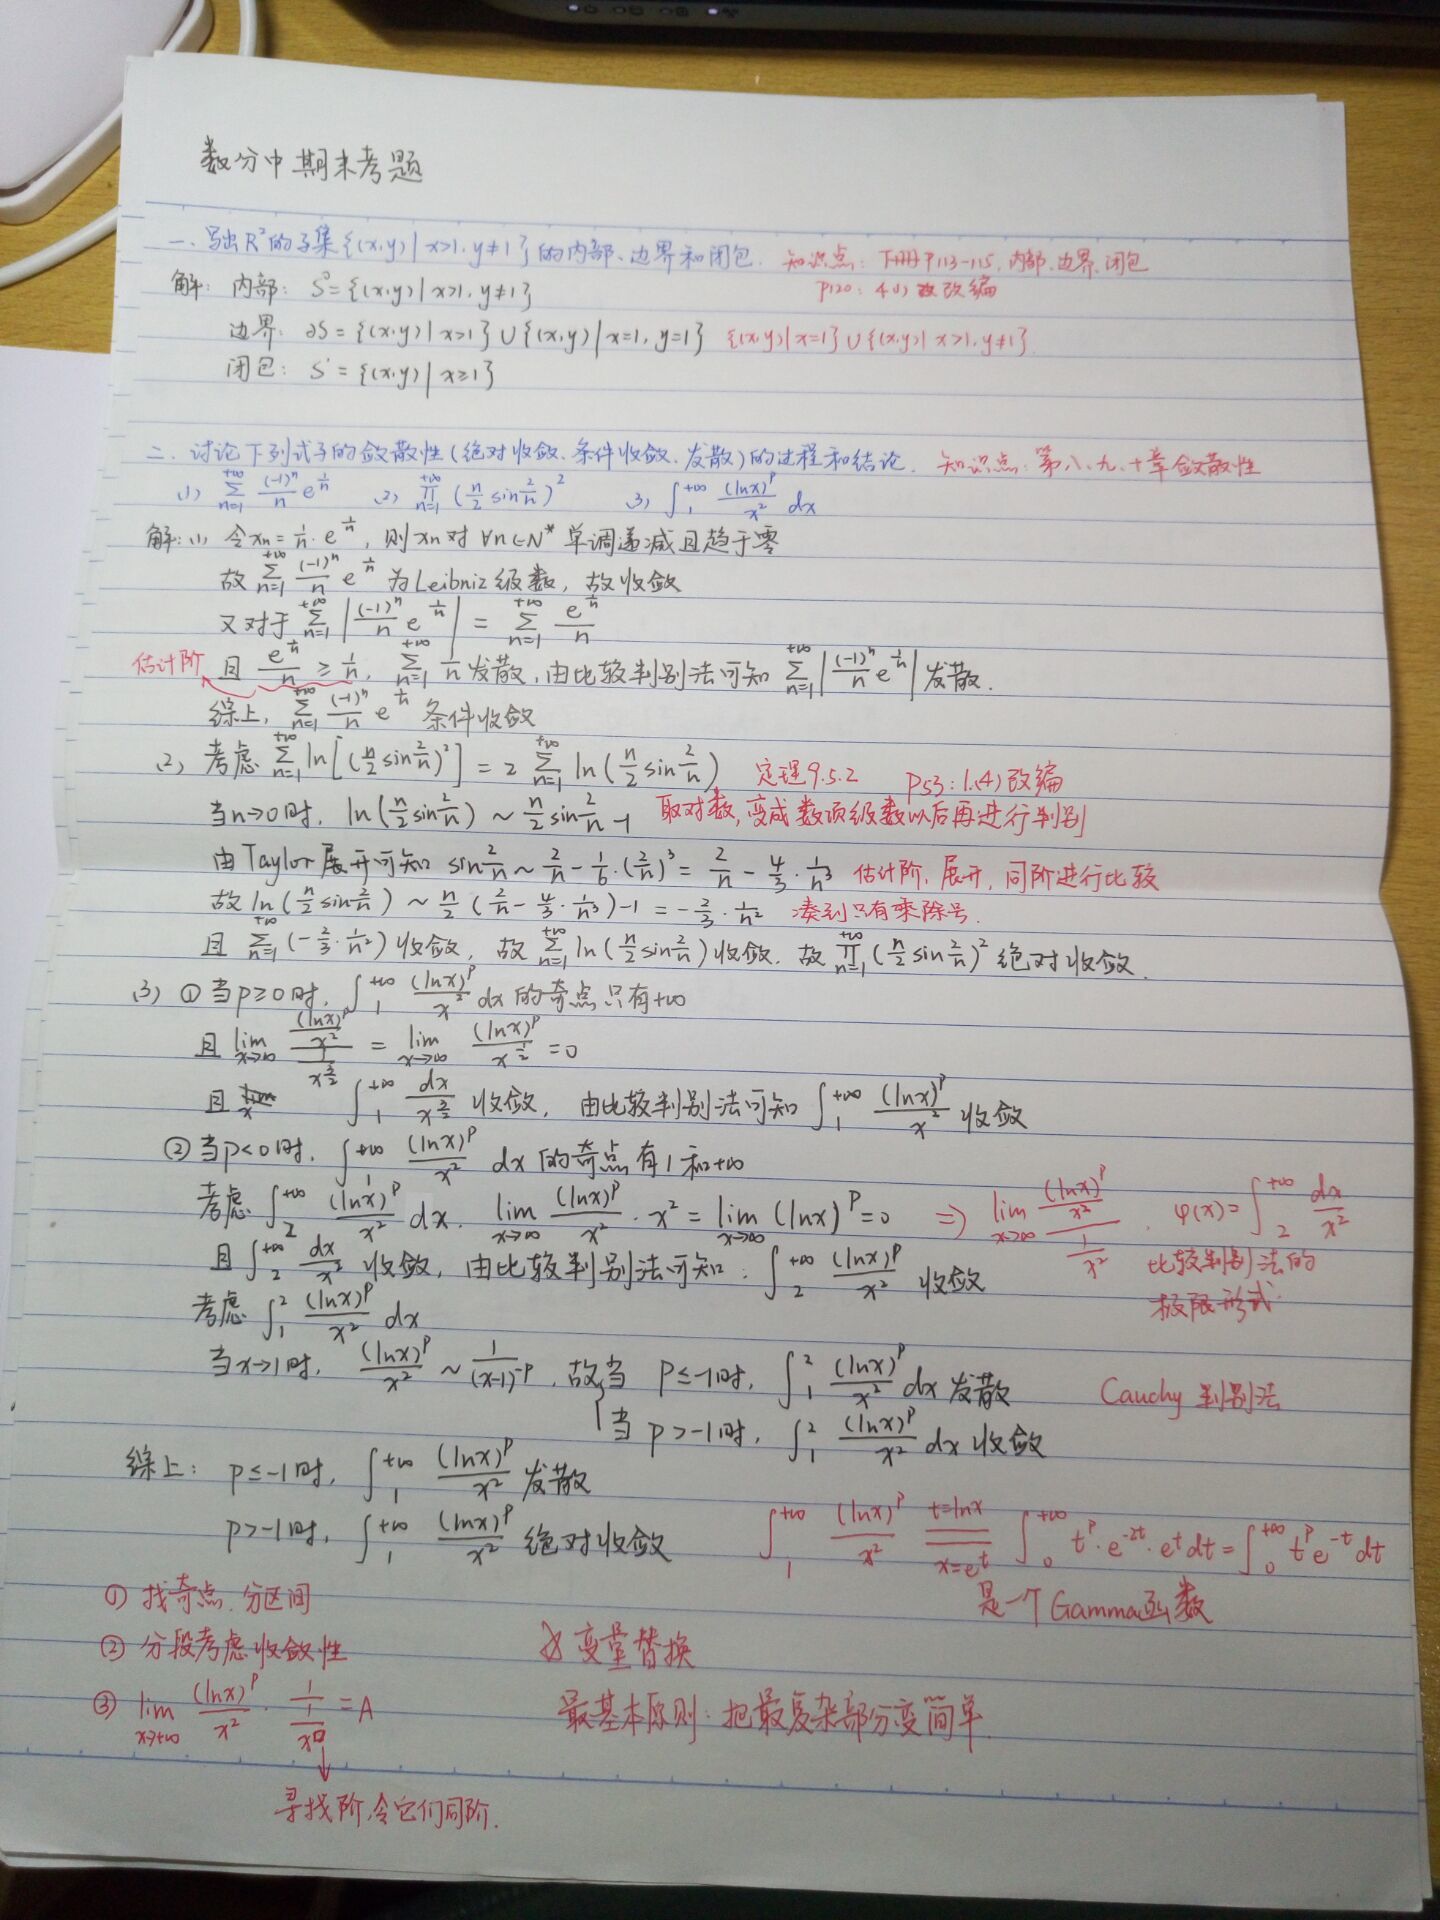 数分中期末考题
一、写出R²的子集{(x,y)|x>1,y≠1}的内部、边界和闭包. 知识点：下册P113-115,内部、边界、闭包
解：内部：S°={(x,y)|x>1,y≠1} P120：4(1)改编
边界：∂S={(x,y)|x>1}∪{(x,y)|x=1,y=1} {(x,y)|x=1}∪{(x,y)|x>1,y≠1}
闭包：S'={(x,y)|x≥1}
二、讨论下列式子的敛散性(绝对收敛、条件收敛、发散)的过程和结论. 知识点：第八、九、十章敛散性
(1) ∑_{n=1}^{+∞} (-1)^n/n e^{1/n} (2) ∏_{n=1}^{+∞} (n/2 sin 2/n)² (3) ∫_1^{+∞} (lnx)^p/x² dx
解：(1) 令xn=1/n·e^{1/n},则xn对∀n∈N*单调递减且趋于零
故∑_{n=1}^{+∞} (-1)^n/n e^{1/n}为Leibniz级数,故收敛
又对于∑_{n=1}^{+∞} |(-1)^n/n e^{1/n}| = ∑_{n=1}^{+∞} e^{1/n}/n
估计阶 且 e^{1/n}/n ≥ 1/n, ∑_{n=1}^{+∞} 1/n发散,由比较判别法可知∑_{n=1}^{+∞} |(-1)^n/n e^{1/n}|发散.
综上,∑_{n=1}^{+∞} (-1)^n/n e^{1/n} 条件收敛
(2) 考虑∑_{n=1}^{+∞} ln[(n/2 sin 2/n)²] = 2∑_{n=1}^{+∞} ln(n/2 sin 2/n) 定理9.5.2 P53：1.(4)改编
当n→0时, ln(n/2 sin 2/n) ~ n/2 sin 2/n -1 取对数,变成数项级数以后再进行判别
由Taylor展开可知 sin 2/n ~ 2/n - 1/6·(2/n)³ = 2/n - 4/3·1/n³ 估计阶,展开,同阶进行比较
故ln(n/2 sin 2/n) ~ n/2 (2/n - 4/3·1/n³)-1 = -2/3·1/n² 凑到只有乘除号.
且∑_{n=1}^{+∞} (-2/3·1/n²)收敛,故∑_{n=1}^{+∞} ln(n/2 sin 2/n)收敛.故∏_{n=1}^{+∞} (n/2 sin 2/n)²绝对收敛.
(3) ①当p≥0时,∫_1^{+∞} (lnx)^p/x² dx的奇点只有+∞
且 lim_{x→∞} ((lnx)^p/x²)/(1/x^{3/2}) = lim_{x→∞} (lnx)^p/x^{1/2} =0
且 ∫_1^{+∞} dx/x^{3/2} 收敛, 由比较判别法可知∫_1^{+∞} (lnx)^p/x² 收敛
②当p<0时, ∫_1^{+∞} (lnx)^p/x² dx的奇点有1和+∞
考虑∫_2^{+∞} (lnx)^p/x² dx. lim_{x→∞} (lnx)^p/x²·x² = lim_{x→∞} (lnx)^p=0 ⇒ lim_{x→∞} ((lnx)^p/x²)/(1/x²). φ(x)=∫_2^{+∞} dx/x²
且∫_2^{+∞} dx/x² 收敛,由比较判别法可知：∫_2^{+∞} (lnx)^p/x² 收敛 比较判别法的
极限形式.
考虑∫_1^2 (lnx)^p/x² dx
当x→1时, (lnx)^p/x² ~ 1/(x-1)^{-p}.故{当 p≤-1时, ∫_1^2 (lnx)^p/x² dx发散 Cauchy判别法
当 p>-1时, ∫_1^2 (lnx)^p/x² dx收敛
综上：p≤-1时, ∫_1^{+∞} (lnx)^p/x² 发散
p>-1时, ∫_1^{+∞} (lnx)^p/x² 绝对收敛 ∫_1^{+∞} (lnx)^p/x² =(t=lnx, x=e^t)= ∫_0^{+∞} t^p·e^{-2t}·e^t dt=∫_0^{+∞} t^p e^{-t} dt
是一个Gamma函数
① 找奇点.分区间
② 分段考虑收敛性 变量替换
③ lim_{x→+∞} (lnx)^p/x² · 1/(1/x^□) = A 最基本原则：把最复杂部分变简单.
寻找阶,令它们同阶.